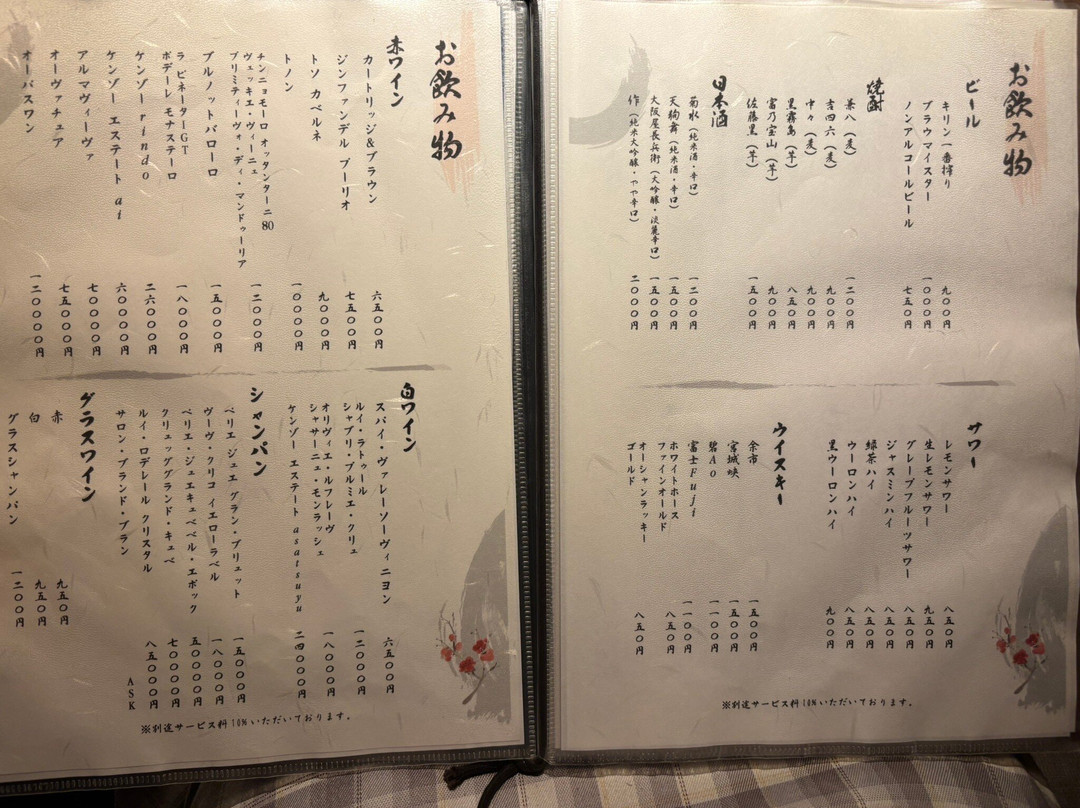 お飲み物
ビール
キリン一番搾り 九〇〇円
ブラウマイスター 一〇〇〇円
ノンアルコールビール 七五〇円
焼酎
兼八（麦） 一二〇〇円
吉四六（麦） 九〇〇円
中々（麦） 九〇〇円
黒霧島（芋） 八五〇円
富乃宝山（芋） 九〇〇円
佐藤黒（芋） 一五〇〇円
日本酒
菊水（純米酒・辛口） 一二〇〇円
天狗舞（純米酒・辛口） 一五〇〇円
大阪屋長兵衛（大吟醸・淡麗辛口） 一五〇〇円
作（純米大吟醸・やや辛口） 二〇〇〇円
サワー
レモンサワー 八五〇円
生レモンサワー 九五〇円
グレープフルーツサワー 八五〇円
ジャスミンハイ 八五〇円
緑茶ハイ 八五〇円
ウーロンハイ 八五〇円
黒ウーロンハイ 九〇〇円
ウイスキー
余市 一五〇〇円
宮城峡 一五〇〇円
碧Ao 一一〇〇円
富士Fuji 一一〇〇円
ホワイトホース
ファインオールド 八五〇円
オーシャンラッキー
ゴールド 八五〇円
※別途サービス料10%いただいております。
お飲み物
赤ワイン
カートリッジ&ブラウン 六五〇〇円
ジンファンデル ブーリオ 七五〇〇円
トソ カベルネ 九〇〇〇円
トノン 一〇〇〇〇円
チンニョモーロ オッタンターニ80
ヴェッキエ・ヴィーニェ
プリミティーヴォ・ディ・マンドゥーリア 一二〇〇〇円
ブルノットバローロ 一五〇〇〇円
ラ ピネーターGT
ポデーレ モナステーロ 一八〇〇〇円
ケンゾーrindo 二六〇〇〇円
ケンゾー エステート ai 六〇〇〇〇円
アルマヴィーヴァ 七〇〇〇〇円
オーヴァチュア 七五〇〇〇円
オーパスワン 一二〇〇〇〇円
白ワイン
スパイ・ヴァレーソーヴィニヨン 六五〇〇円
ルイ・ラトゥール
シャブリ・プルミエ・クリュ 一二〇〇〇円
オリヴィエ・ルフレーヴ
シャサーニュ・モンラッシェ 一八〇〇〇円
ケンゾー エステート asatsuyu 二四〇〇〇円
シャンパン
ペリエ・ジュエ グラン・ブリュット 一五〇〇〇円
ヴーヴ・クリコ イエローラベル 一八〇〇〇円
ペリエ・ジュエキュベベル・エポック 五〇〇〇〇円
クリュッググランド・キュベ 七〇〇〇〇円
ルイ・ロデレール クリスタル 八五〇〇〇円
サロン・ブランド・ブラン ASK
グラスワイン
赤 九五〇円
白 九五〇円
グラスシャンパン 一二〇〇円
※別途サービス料10%いただいております。